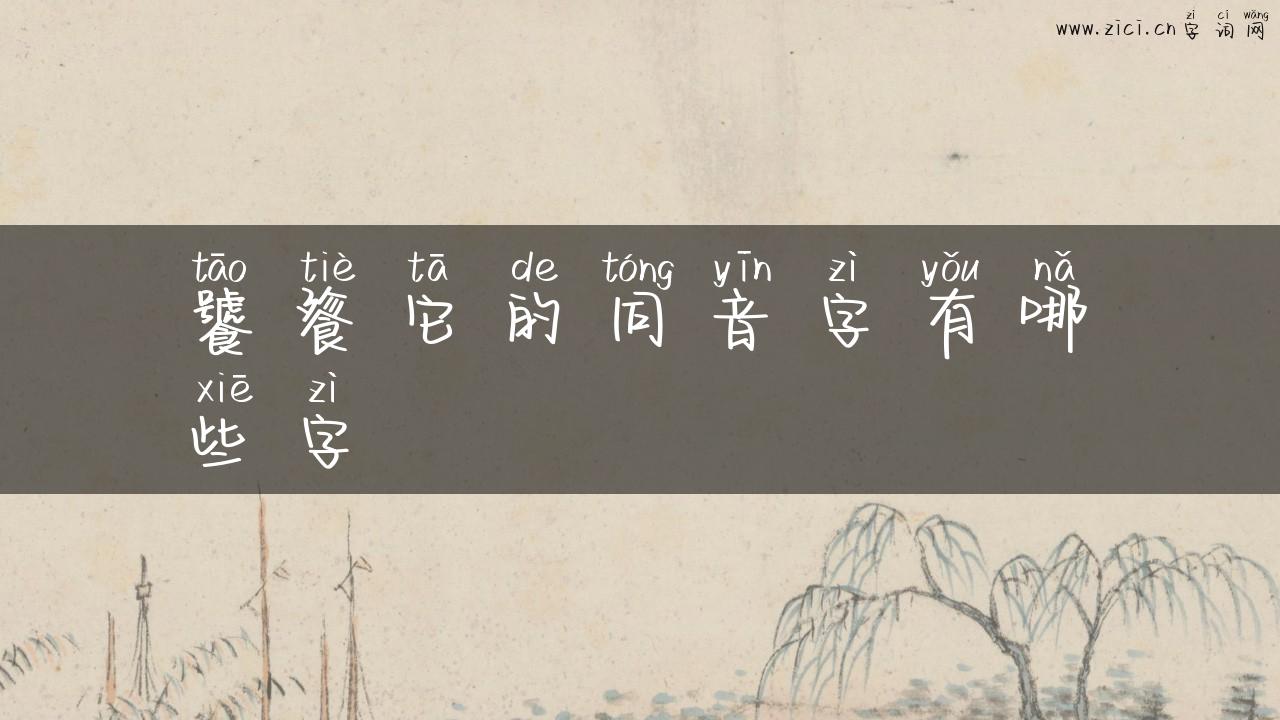 zì cí wǎng
www.zici.cn字词网
tāo tiè tā de tóng yīn zì yǒu nǎ
饕餮它的同音字有哪
xiē zì
些字